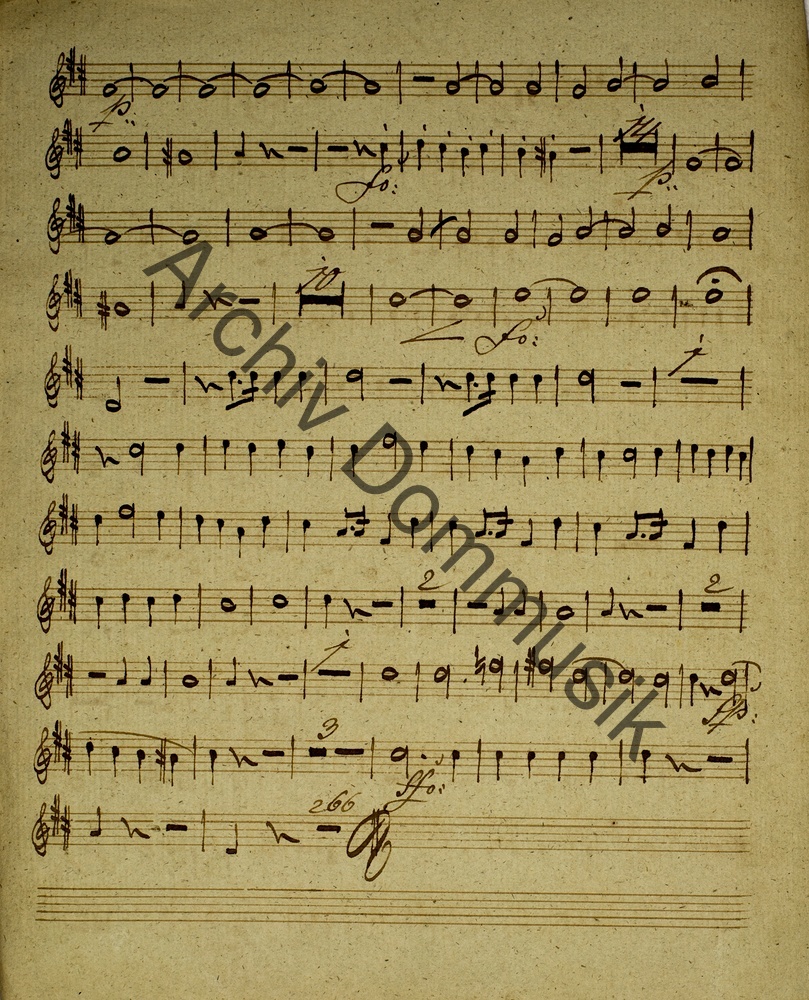 p:
14
fo: p:
10
fo:
1
2 2
1
ffp:
3
ffo:
266
Archiv Dommusik